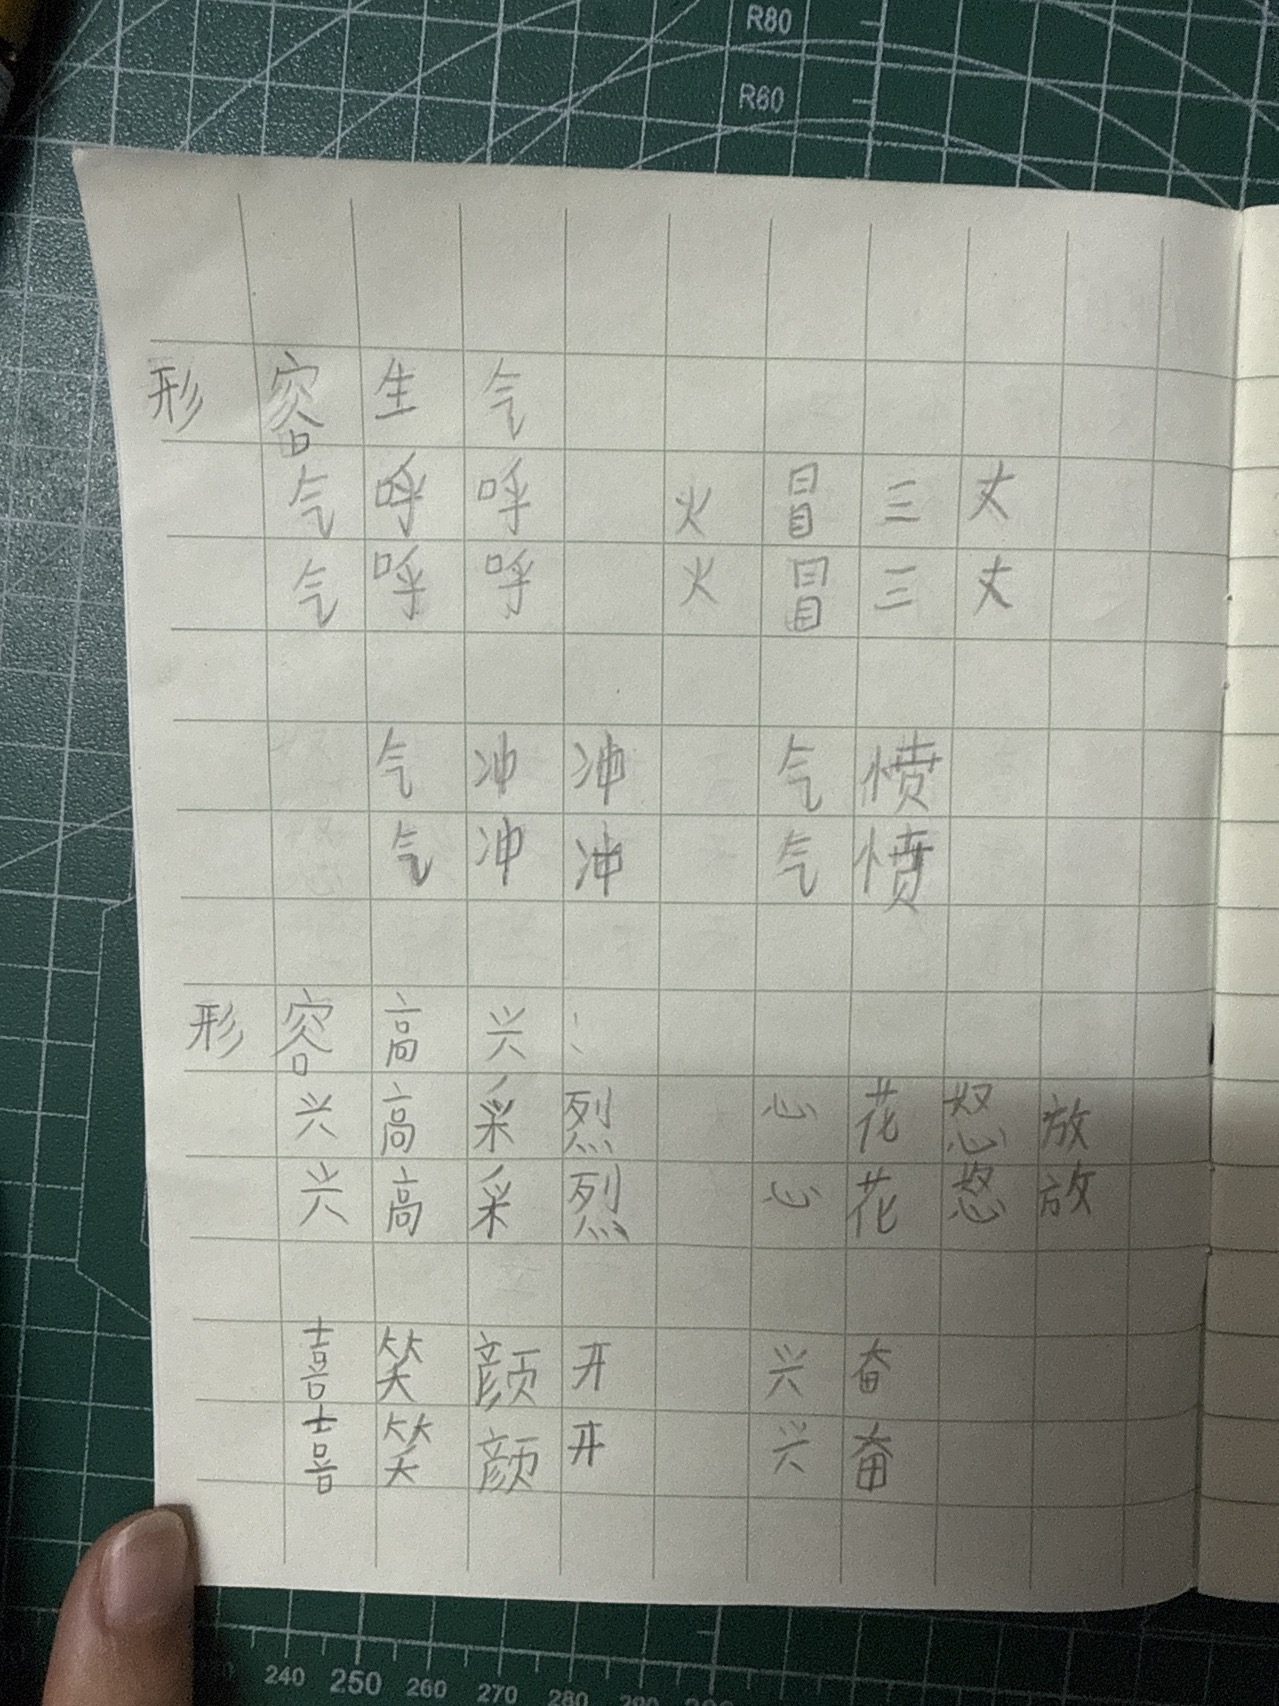 R80
R60
形容生气
气呼呼 火冒三丈
气呼呼 火冒三丈
气冲冲 气愤
气冲冲 气愤
形容高兴:
兴高采烈 心花怒放
兴高采烈 心花怒放
喜笑颜开 兴奋
喜笑颜开 兴奋
240 250 260 270 280